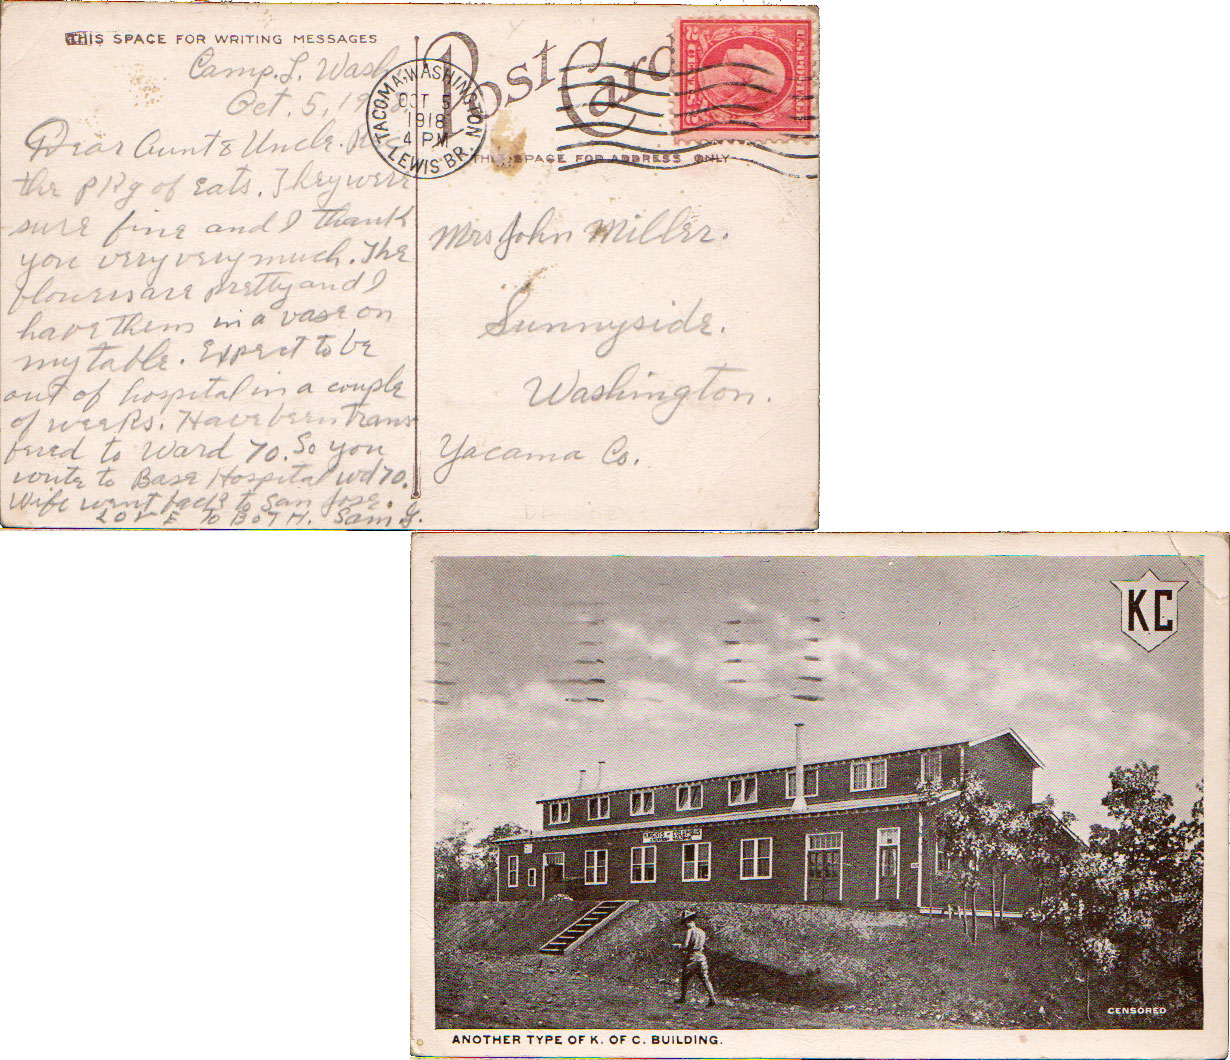 THIS SPACE FOR WRITING MESSAGES
Post Card
THIS SPACE FOR ADDRESS ONLY
TACOMA, WASHINGTON
OCT 5
1918
4 PM
LEWIS BR.
Camp. L. Wash
Oct. 5, 1918
Dear Aunt & Uncle.
the pkg of eats. They were
sure fine and I thank
you very very much. The
flowers are pretty and I
have them in a vase on
my table. Expect to be
out of hospital in a couple
of weeks. Have been trans
fered to Ward 70. So you
write to Base Hospital wd 70.
Wife went back to San Jose.
LOVE To BOTH. Sam J.
Mrs John Miller.
Sunnyside.
Washington.
Yacama Co.
KC
CENSORED
ANOTHER TYPE OF K. OF C. BUILDING.